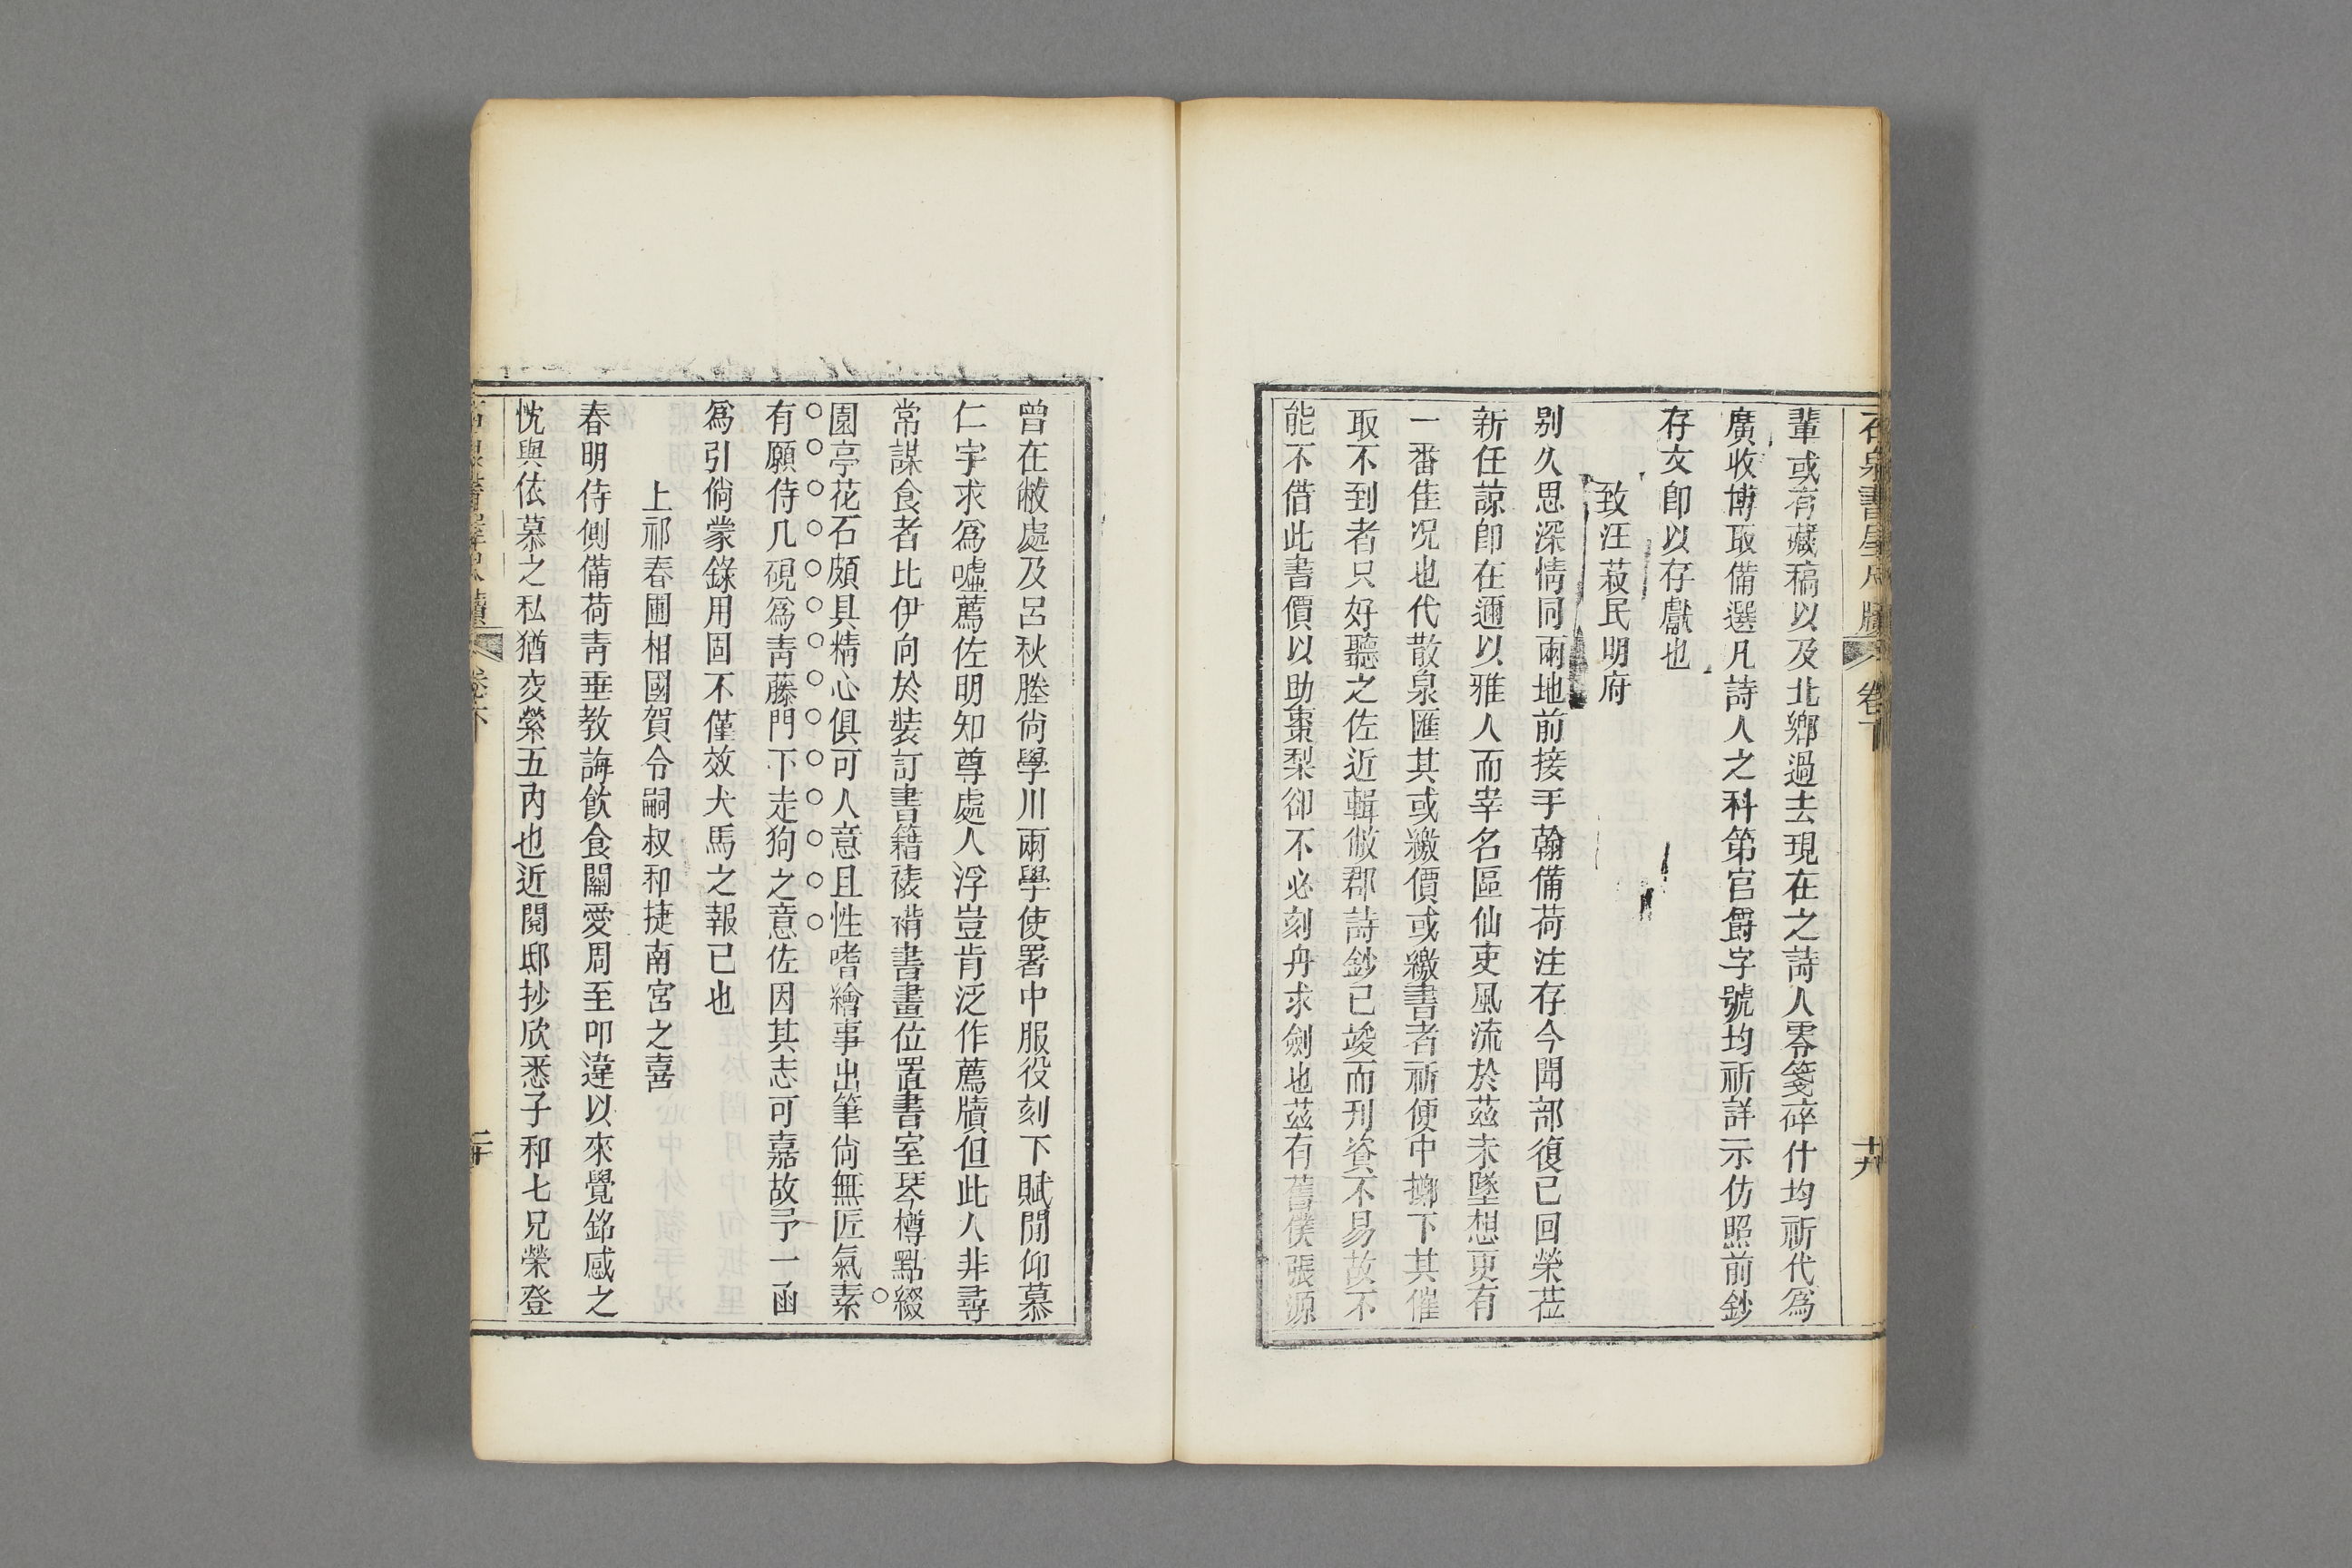 石泉書屋尺牘 卷下 十九
輩或有藏稿以及北鄉過去現在之詩人零箋碎什均祈代爲
廣收博取備選凡詩人之科第官爵字號均祈詳示仿照前鈔
存文卽以存獻也
致汪菽民明府
别久思深情同兩地前接手翰備荷注存今聞部復已回榮莅
新任諒卽在邇以雅人而宰名區仙吏風流於茲未墜想更有
一番佳況也代散泉匯其或繳價或繳書者祈便中擲下其催
取不到者只好聽之佐近輯敝郡詩鈔已竣而刊資不易故不
能不借此書價以助棗梨卻不必刻舟求劍也茲有舊僕張源
曾在敝處及呂秋塍尙學川兩學使署中服役刻下賦閒仰慕
仁宇求爲噓薦佐明知尊處人浮豈肯泛作薦牘但此人非尋
常謀食者比伊向於裝訂書籍裱褙書畫位置書室琴樽點綴
園亭花石頗具精心俱可人意且性嗜繪事出筆尙無匠氣素
有願侍几硯爲靑藤門下走狗之意佐因其志可嘉故予一函
爲引倘蒙錄用固不僅效犬馬之報已也
上祁春圃相國賀令嗣叔和捷南宮之喜
春明侍側備荷靑垂教誨飮食關愛周至叩違以來覺銘感之
忱與依慕之私猶交縈五內也近閱邸抄欣悉子和七兄榮登
卷下 二十